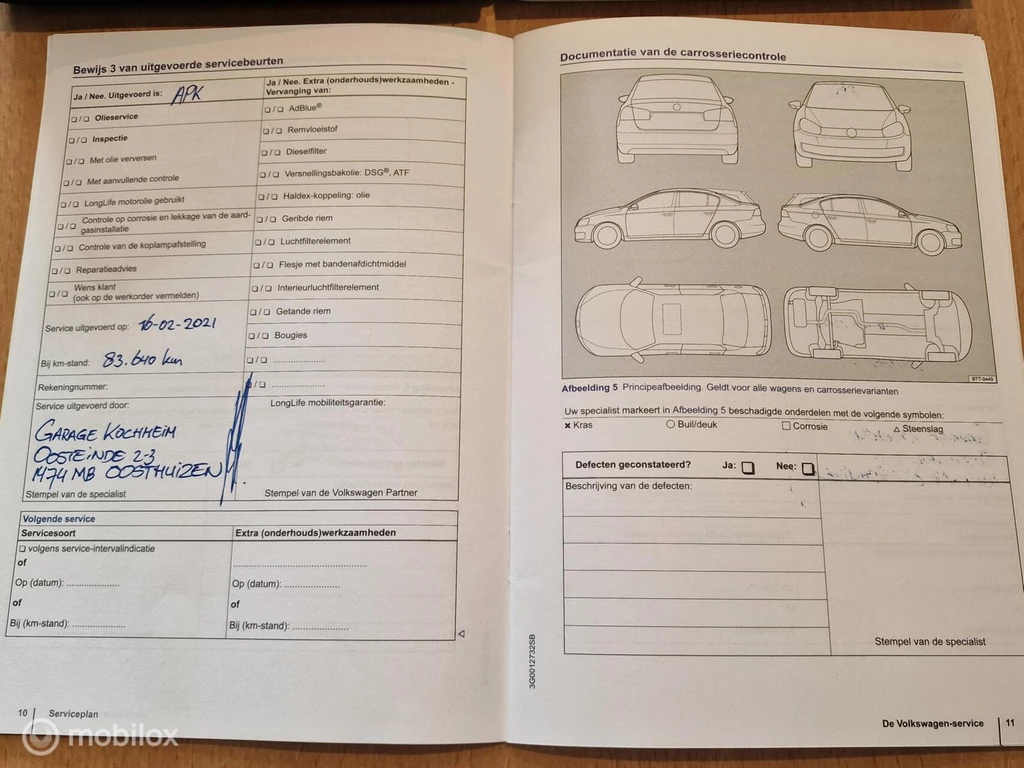 Bewijs 3 van uitgevoerde servicebeurten
Ja / Nee. Uitgevoerd is: APK
❑ / ❑ Olieservice
❑ / ❑ Inspectie
❑ / ❑ Met olie verversen
❑ / ❑ Met aanvullende controle
❑ / ❑ LongLife motorolie gebruikt
❑ / ❑ Controle op corrosie en lekkage van de aard-
gasinstallatie
❑ / ❑ Controle van de koplampafstelling
❑ / ❑ Reparatieadvies
❑ / ❑ Wens klant
(ook op de werkorder vermelden)
Service uitgevoerd op: 16-02-2021
Bij km-stand: 83.640 km
Rekeningnummer:
Service uitgevoerd door:
GARAGE KOCHHEIM
OOSTEINDE 2-3
1474 MB OOSTHUIZEN
Stempel van de specialist
Ja / Nee. Extra (onderhouds)werkzaamheden -
Vervanging van:
❑ / ❑ AdBlue®
❑ / ❑ Remvloeistof
❑ / ❑ Dieselfilter
❑ / ❑ Versnellingsbakolie: DSG®, ATF
❑ / ❑ Haldex-koppeling: olie
❑ / ❑ Geribde riem
❑ / ❑ Luchtfilterelement
❑ / ❑ Flesje met bandenafdichtmiddel
❑ / ❑ Interieurluchtfilterelement
❑ / ❑ Getande riem
❑ / ❑ Bougies
❑ / ❑ .....................
❑ / ❑ .....................
LongLife mobiliteitsgarantie:
Stempel van de Volkswagen Partner
Volgende service
Servicesoort
❑ volgens service-intervalindicatie
of
Op (datum): .....................
of
Bij (km-stand): .....................
Extra (onderhouds)werkzaamheden
.....................
Op (datum): .....................
of
Bij (km-stand): .....................
10 Serviceplan
Documentatie van de carrosseriecontrole
BTT-0449
Afbeelding 5 Principeafbeelding. Geldt voor alle wagens en carrosserievarianten
Uw specialist markeert in Afbeelding 5 beschadigde onderdelen met de volgende symbolen:
× Kras ○ Buil/deuk □ Corrosie △ Steenslag
Defecten geconstateerd? Ja: ❑ Nee: ❑
Beschrijving van de defecten:
Stempel van de specialist
3G0012732SB
De Volkswagen-service 11
mobilox